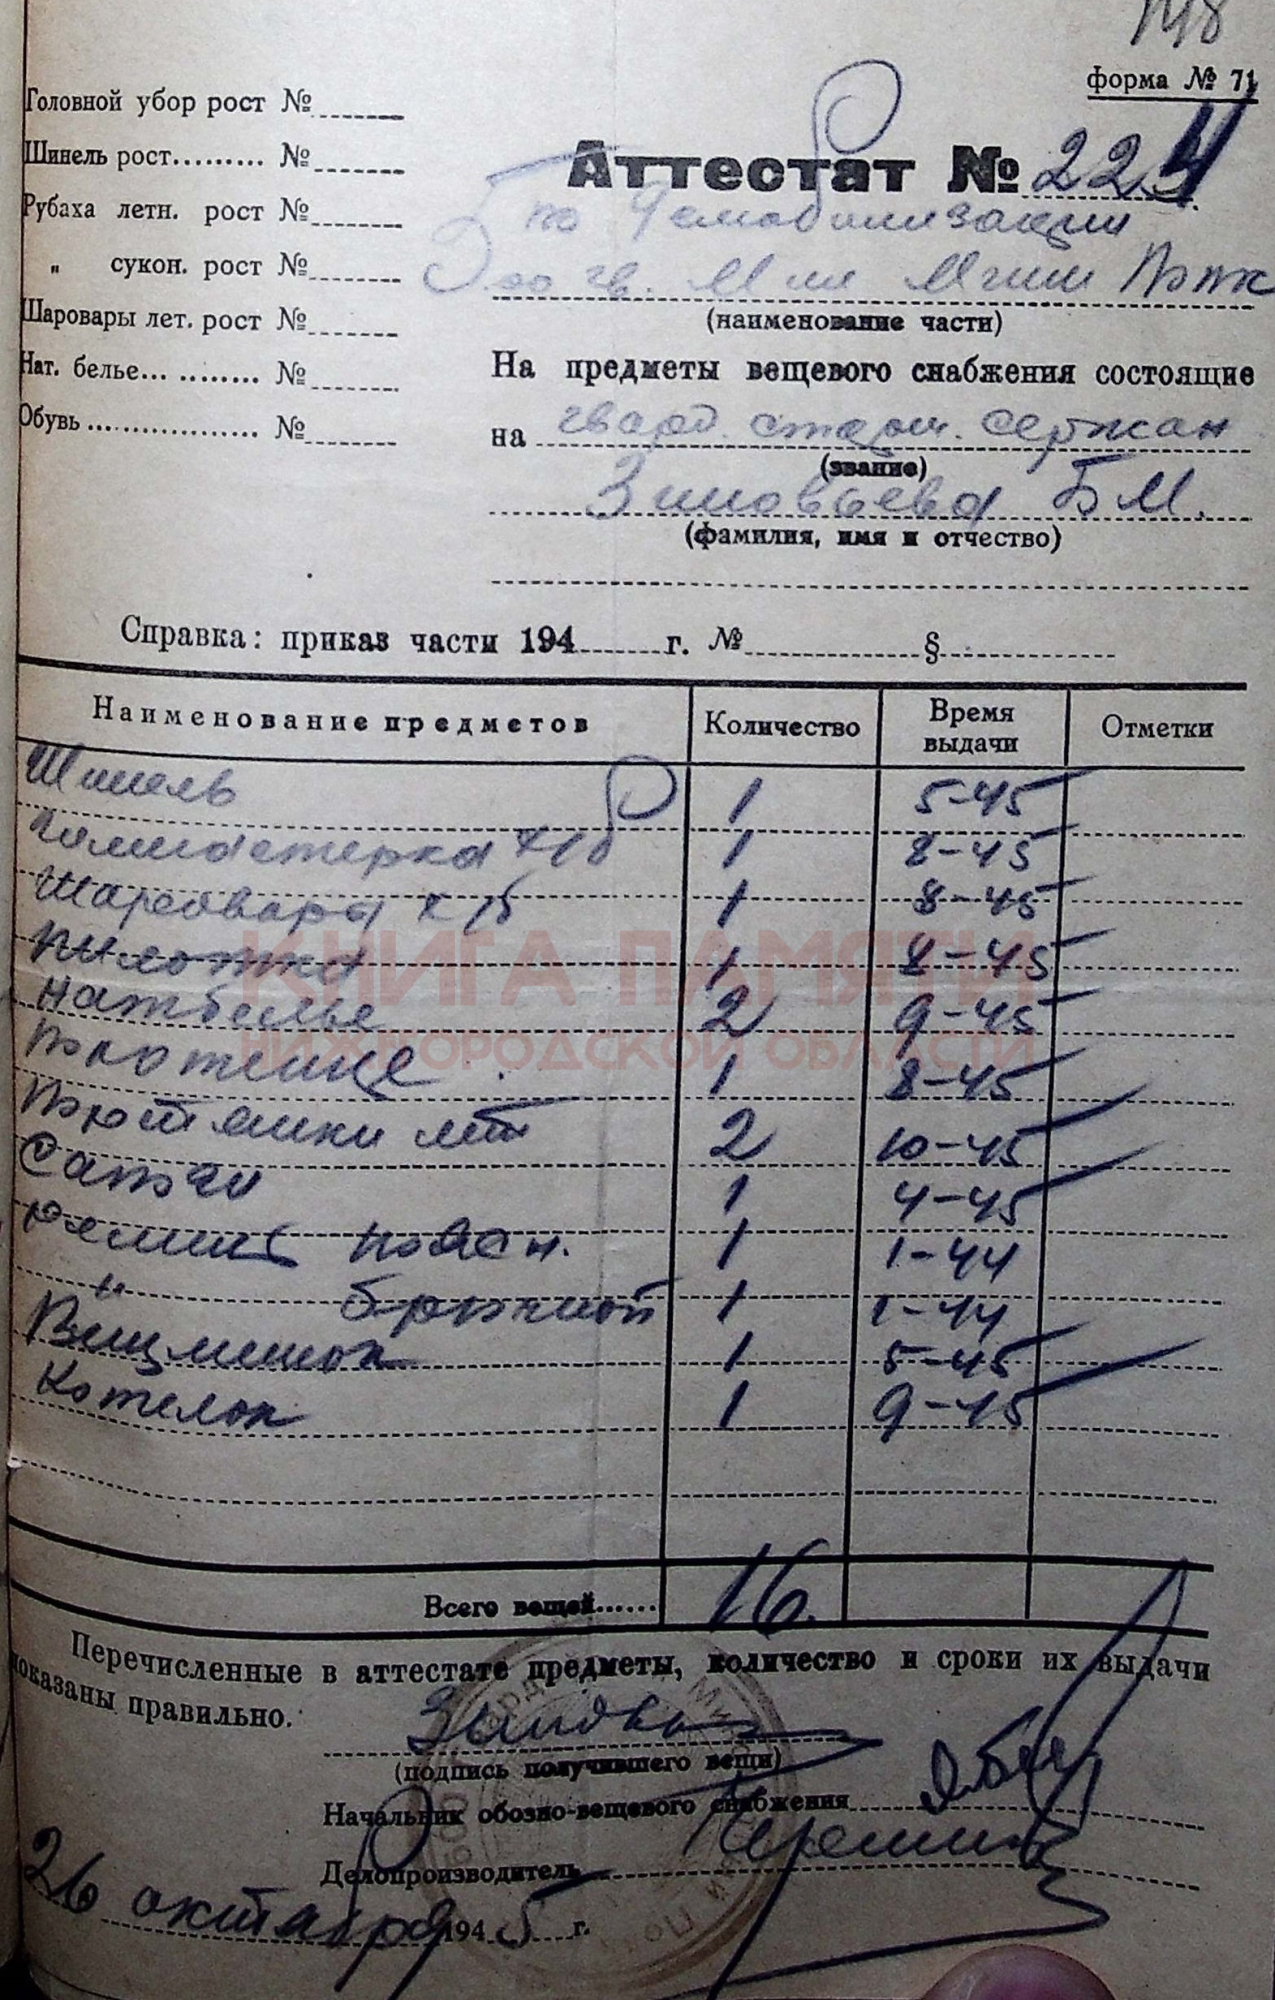 форма № 71
Головной убор рост №
Шинель рост......... №
Рубаха летн. рост №
" сукон. рост №
Шаровары лет. рост №
Нат. белье... ........ №
Обувь .................. №
Аттестат № 224
по демобилизации
гв.
(наименование части)
На предметы вещевого снабжения состоящие
на гвард. старш. сержан
(звание)
Зиновьева Б М.
(фамилия, имя и отчество)
Справка: приказ части 194 г. № §
Наименование предметов Количество Время выдачи Отметки
Шинель 1 5-45
Гимнастерка х/б 1 8-45
Шаровары х/б 1 8-45
Пилотка 1 8-45
Натбелье 2 9-45
Полотенце 1 8-45
Портянки лет 2 10-45
Сапоги 1 4-45
Ремень поясн. 1 1-44
" брючной 1 1-44
Вещмешок 1 5-45
Котелок 1 9-45
Всего вещей...... 16.
КНИГА ПАМЯТИ
НИЖЕГОРОДСКОЙ ОБЛАСТИ
Перечисленные в аттестате предметы, количество и сроки их выдачи
показаны правильно.
(подпись получившего вещи)
Начальник обозно-вещевого снабжения
Делопроизводитель
26 октября 1945 г.